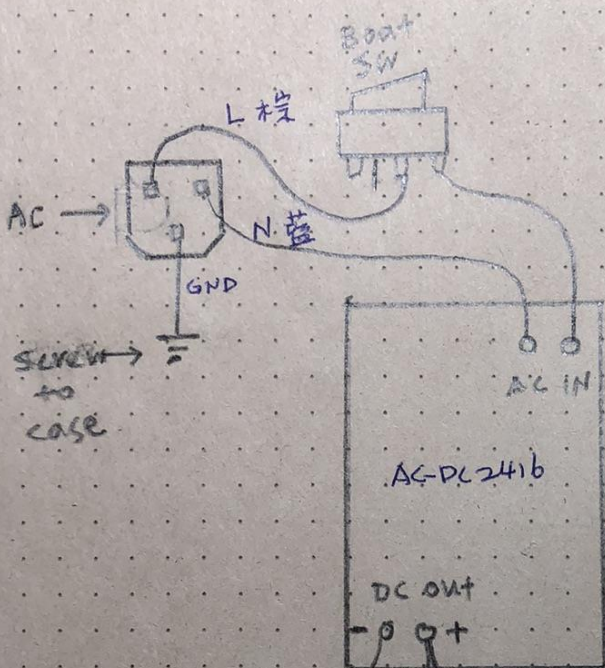 Boat
SW
L 棕
AC
N 蓝
GND
Screw
to
case
AC IN
AC-DC 2416
DC OUt
- +